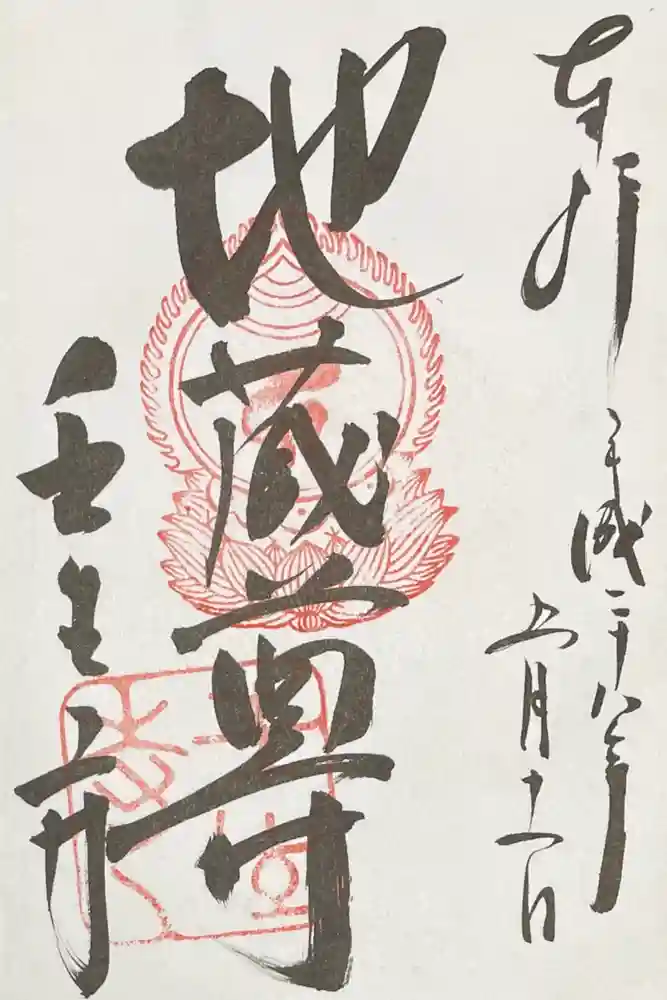 奉拝
平成二十八年
五月十一日
地蔵尊
壬生寺